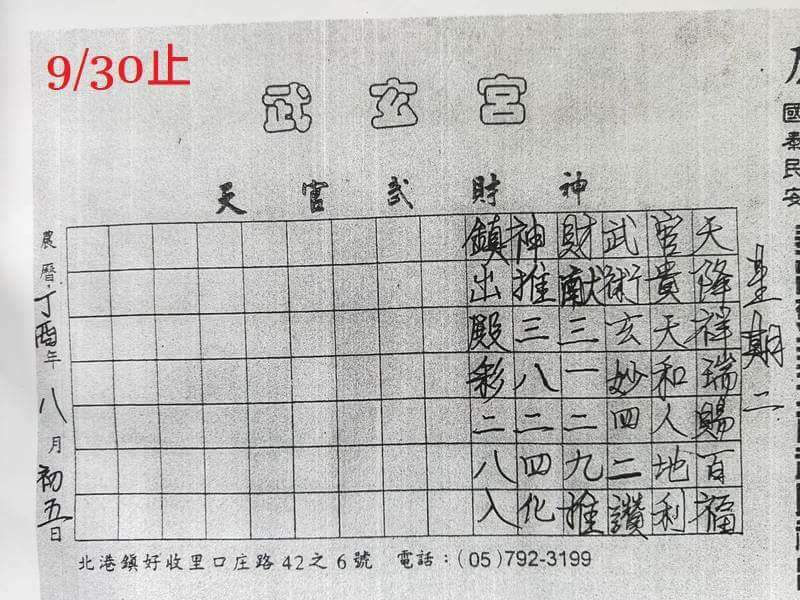 9/30止
武玄宮
天官武財神
星期二
天降祥瑞賜百福
官貴天和人地利
武術玄妙四二讚
財献三一二九推
神推三八二四化
鎮出殿彩二八入
農曆丁酉年八月初五日
北港鎮好收里口庄路42之6號 電話：(05)792-3199
國泰民安